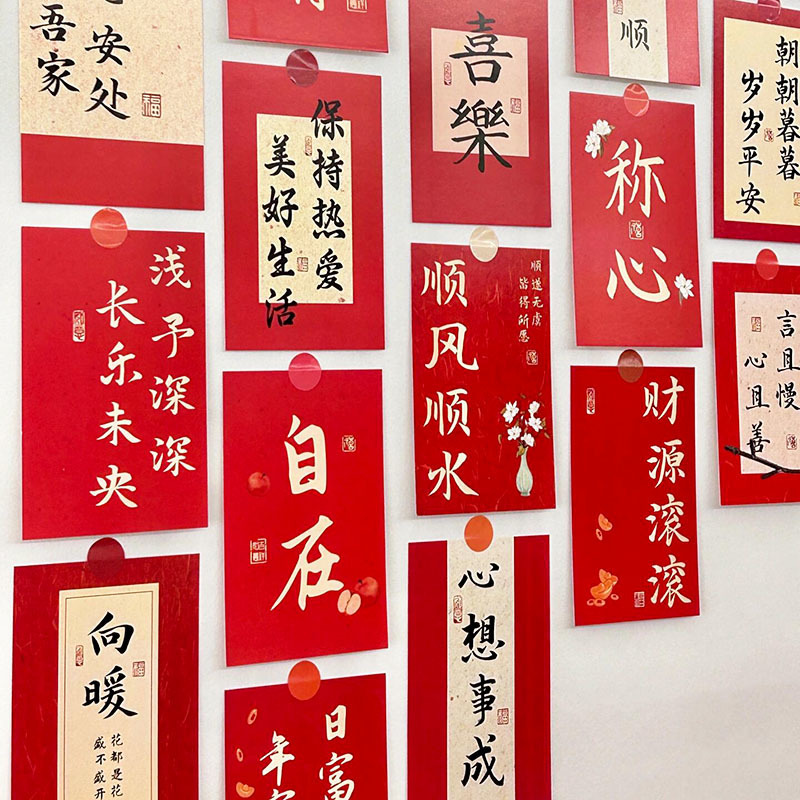 安处
吾家
福
保持热爱
美好生活
喜樂
顺
朝朝暮暮
岁岁平安
称心
浅予深深
长乐未央
順遂无虞
皆得所愿
顺风顺水
言且慢
心且善
自在
财源滚滚
向暖
花都是花
盛不盛开
心想事成
日富
年